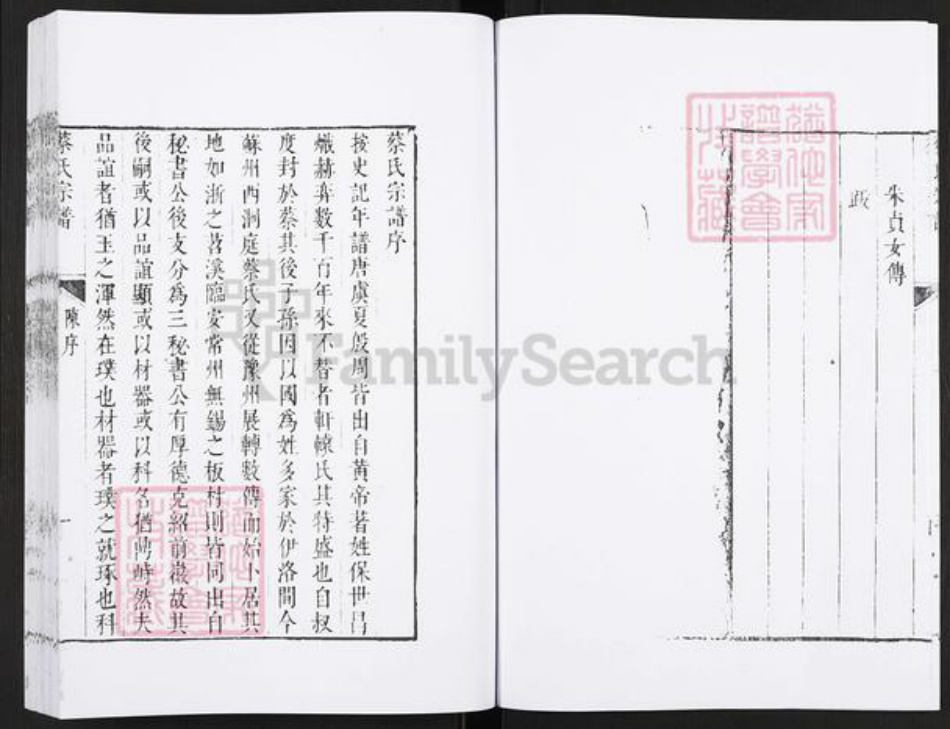 朱貞女傳
跋
蔡氏宗譜序
按史記年譜唐虞夏殷周皆出自黃帝著姓保世昌
熾赫弈數千百年來不替者軒轅氏其特盛也自叔
度封於蔡其後子孫因以國為姓多家於伊洛間今
蘇州西洞庭蔡氏又從豫州展轉數傳而始卜居其
地如浙之苕溪臨安常州無錫之板村則皆同出自
秘書公後支分為三秘書公有厚德克紹前徽故其
後嗣或以品誼顯或以材器或以科名猶時然夫
品誼者猶玉之渾然在璞也材器者璞之就琢也科
蔡氏宗譜
陳序
一
FamilySearch